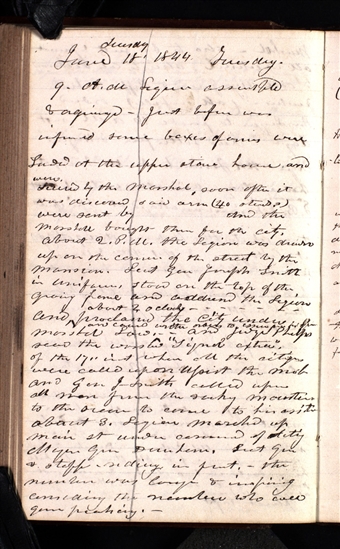 Tuesday
June 18. 1844 Tuesday.
9. A.M. Legion assembled
& arranged - Just before was
informed some boxes of arms were
landed at the upper stone house and
were
secured by the Marshal, soon after it
was discovered said arms (40 stands)
were sent by and the
marshall bought them for the city,
about 2. P.M. the Legion was drawn
up on the corner of the street by the
mansion. Lieut Gen Joseph Smith
in uniform stood on the top of the
frame and addressed the Legion
about 2 oclock -
and proclaimed the City under
marshal law. and Judge Phelps
read the Warsaw "Signal extra"
of the 17. inst when all the citizens
were called upon to assist the mob
and Gen J Smith called upon
all men from the rocky mountains
to the ocean to come to his assistance
about 3. Legion marched up
main st under command of
Major Gen Dunham. Lieut Gen
& staff riding in front, - the
number was large & inspiring
considering the number who
gone preaching. -